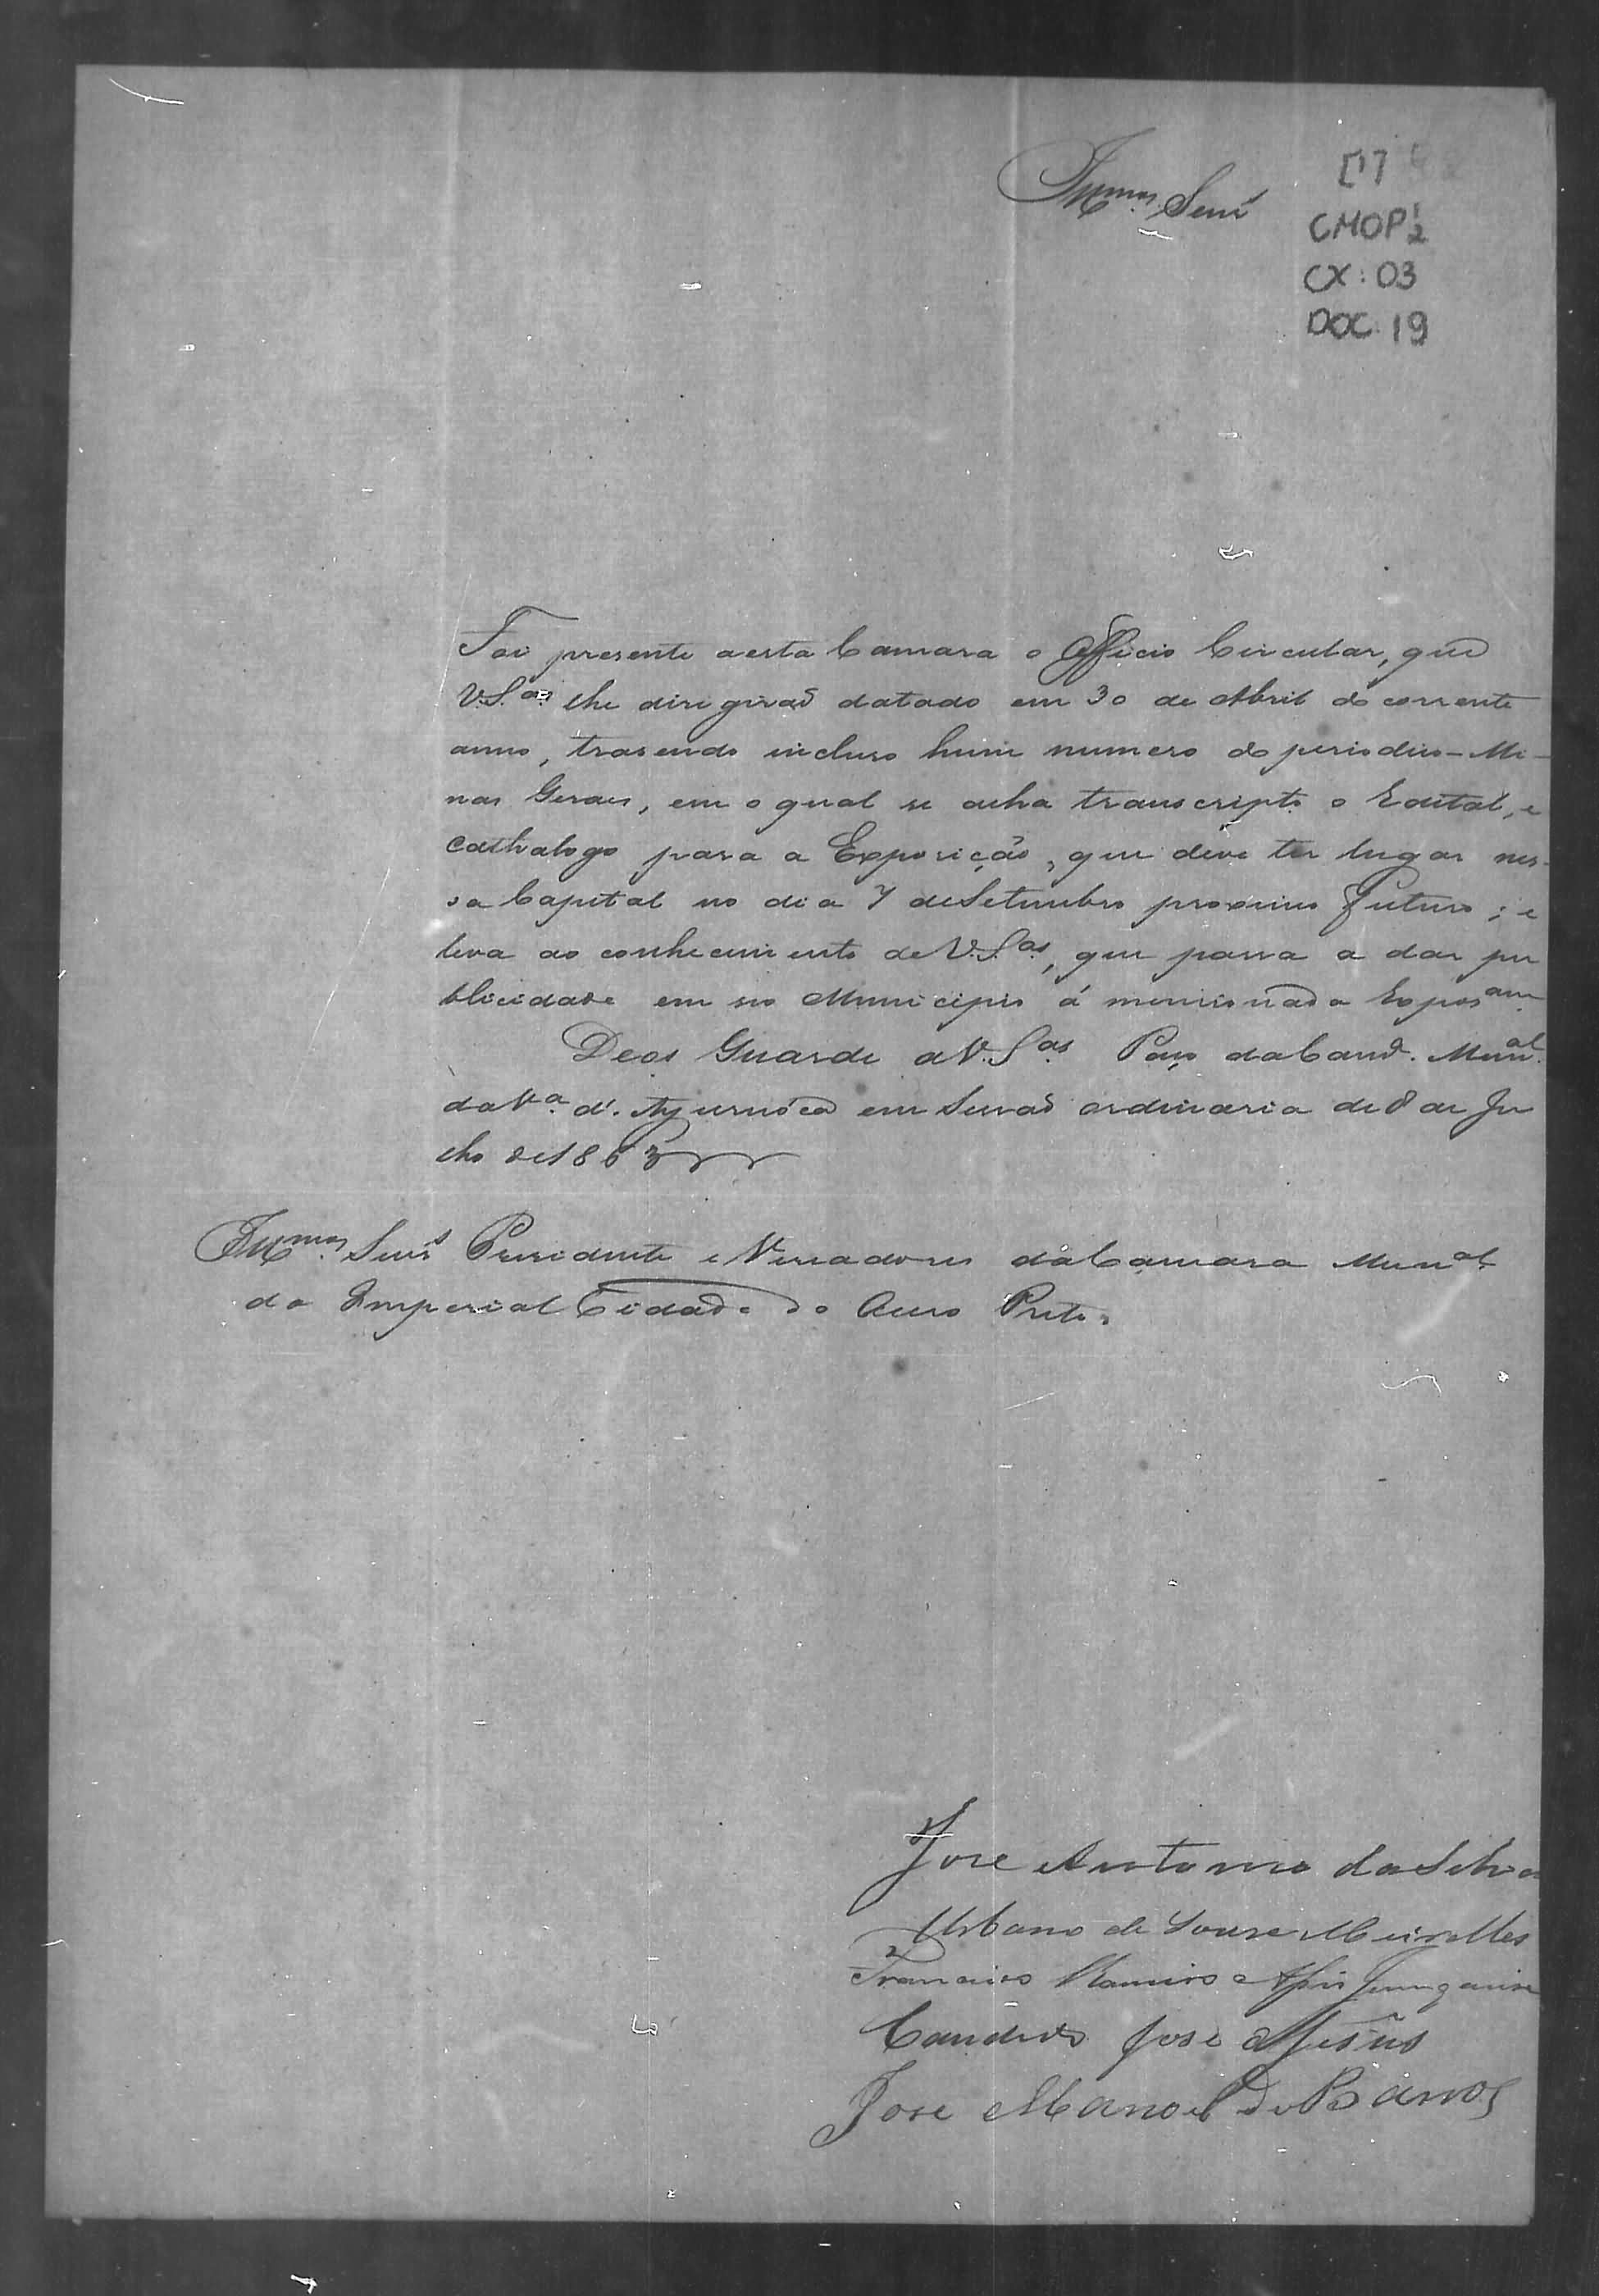 Illmos. Senrs
[17
CMOP 1/2
CX: 03
DOC. 19
Foi presente a esta Camara o Officio Circular, que
V.S.as lhe dirigiraõ datado em 30 de Abril do corrente
anno, trasendo incluso hum numero do periodico - Mi-
nas Geraes, em o qual se acha transcripto o Edital, e
Cathalogo para a Exposição, que deve ter lugar nes-
sa Capital no dia 7 de Setembro proximo futuro; e
leva ao conhecimento de V.S.as, que passa a dar pu
blicidade em seo Municipio á mencionada
Deos Guarde a V.S.as Paço da Camrª. Munal.
da Vª. d'Ayuruóca em Sessaõ ordinaria de 8 de Ju
lho de 1863
Illmos. Senrs Presidente e Vereadores da Camara Munal.
da Imperial Cidade do Ouro Preto.
Jose Antonio da Silva
Urbano de Souza Meirelles
Francisco Ramiro
Candido José
Jose Manoel de Barros